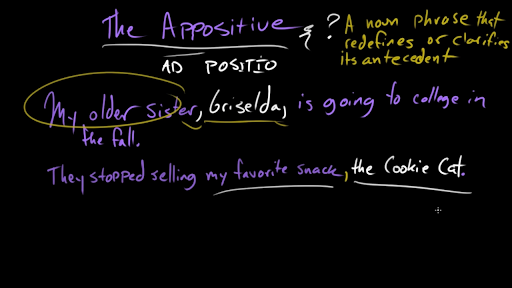 The Appositive & ? A noun phrase that
redefines or clarifies
its antecedent
AD POSITIO
My older sister, Griselda, is going to college in
the fall.
They stopped selling my favorite snack, the Cookie Cat.